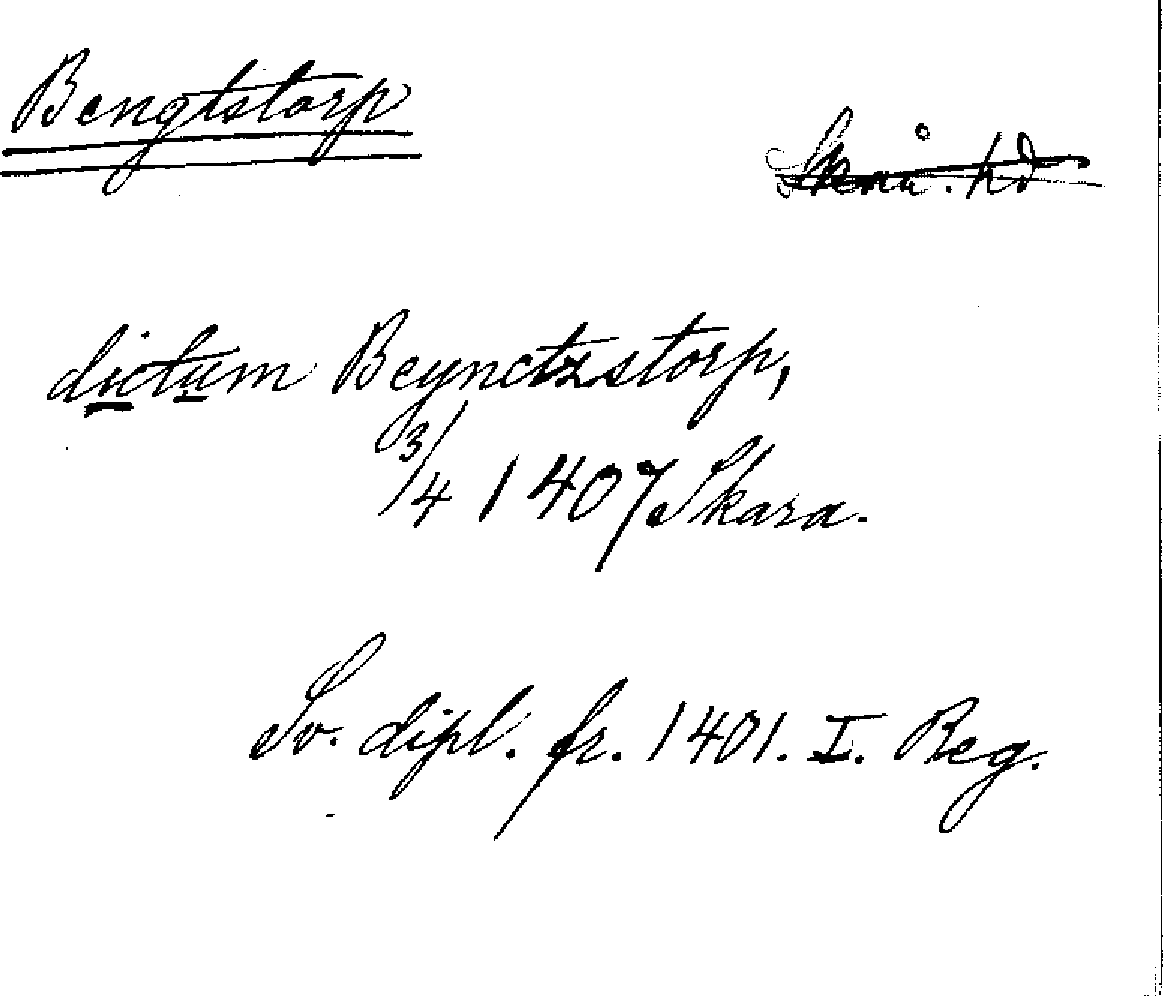 Bengtstorp
dictum Beynctzstorp,
3/4 1407 Skara.
Sv. dipl. fr. 1401. I. Reg.